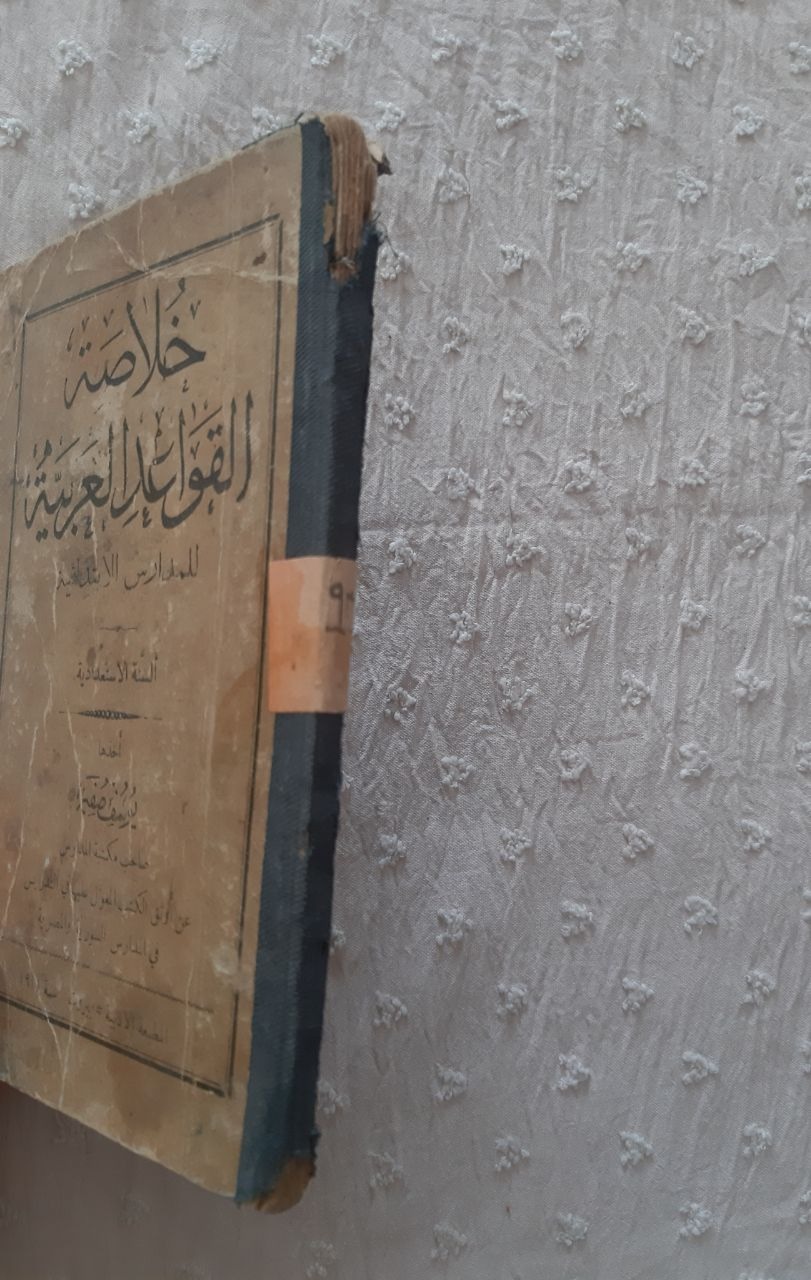 خُلَاصَة
القَوَاعِدِ العَرَبِيَّةِ
للمدارس الابتدائية
السنة الاستعدادية
أخذها
يُوسُف صُفَيْر
صاحب مكتبة المدارس
عن أوثق الكتب المعوّل عليها في التدريس
في المدارس السورية والمصرية
الادبية بيروت سنة